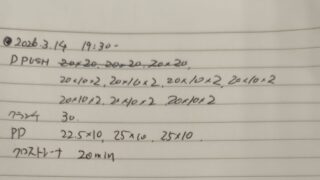 2026.3.14 19:30-
D PUSH 20×20, 20×20, 20×20,
20×10×2, 20×10×2, 20×10×2, 20×10×2
20×10×2, 20×10×2 20×10×2
プランク 30
PD 22.5×10, 25×10, 25×10,
クロストレーナ 20min